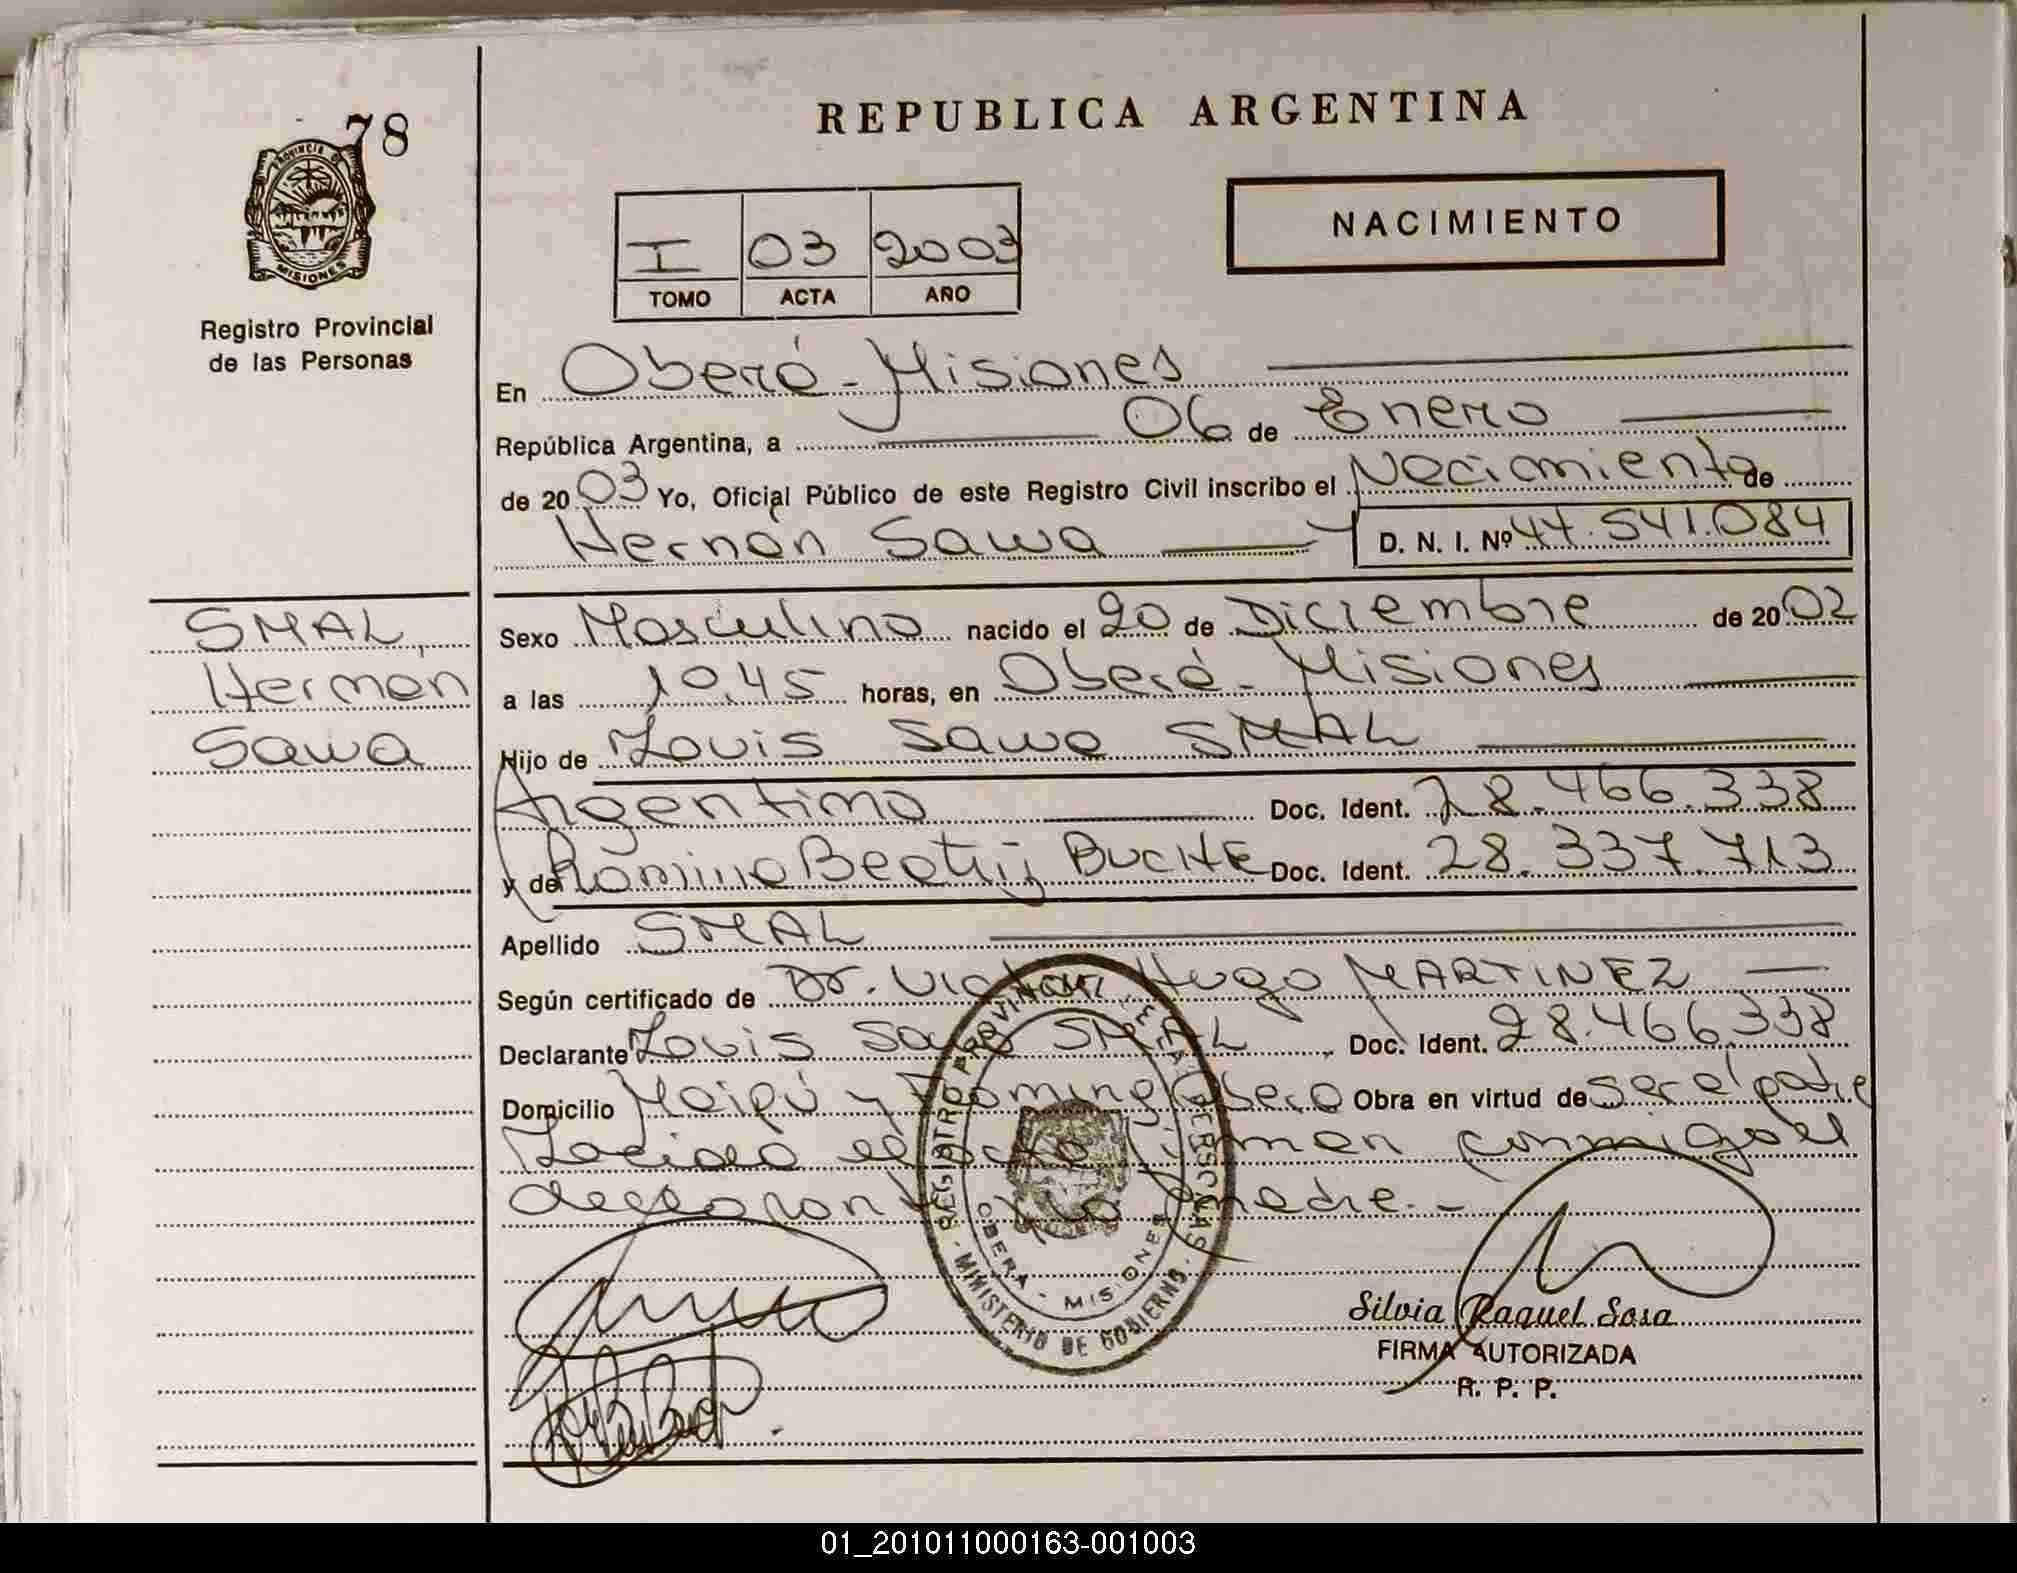 78
PROVINCIA DE
MISIONES
Registro Provincial
de las Personas
REPUBLICA ARGENTINA
I 03 2003
TOMO ACTA AÑO
NACIMIENTO
En Oberá - Misiones
República Argentina, a 06 de Enero
de 2003 Yo, Oficial Público de este Registro Civil inscribo el Nacimiento de
Hernán Sawa D. N. I. Nº 47.541.084
SMAL,
Hernán
Sawa
Sexo Masculino nacido el 20 de Diciembre de 2002
a las 10,45 horas, en Oberá - Misiones
Hijo de Louis Sawa SMAL
Argentino Doc. Ident. 28.466.338
y de Romina Beatriz BUCHE Doc. Ident. 28.337.713
Apellido SMAL
Según certificado de Dr. Victor Hugo MARTINEZ
Declarante Louis Sawa SMAL Doc. Ident. 28.466.338
Domicilio Maipú y Oberá Obra en virtud de ser el padre
Leída el acta firman conmigo el
declarante y la madre.-
REGISTRO PROVINCIAL DE LAS PERSONAS
OBERA - MISIONES
MINISTERIO DE GOBIERNO
Silvia Raquel Sosa
FIRMA AUTORIZADA
R. P. P.
01_201011000163-001003